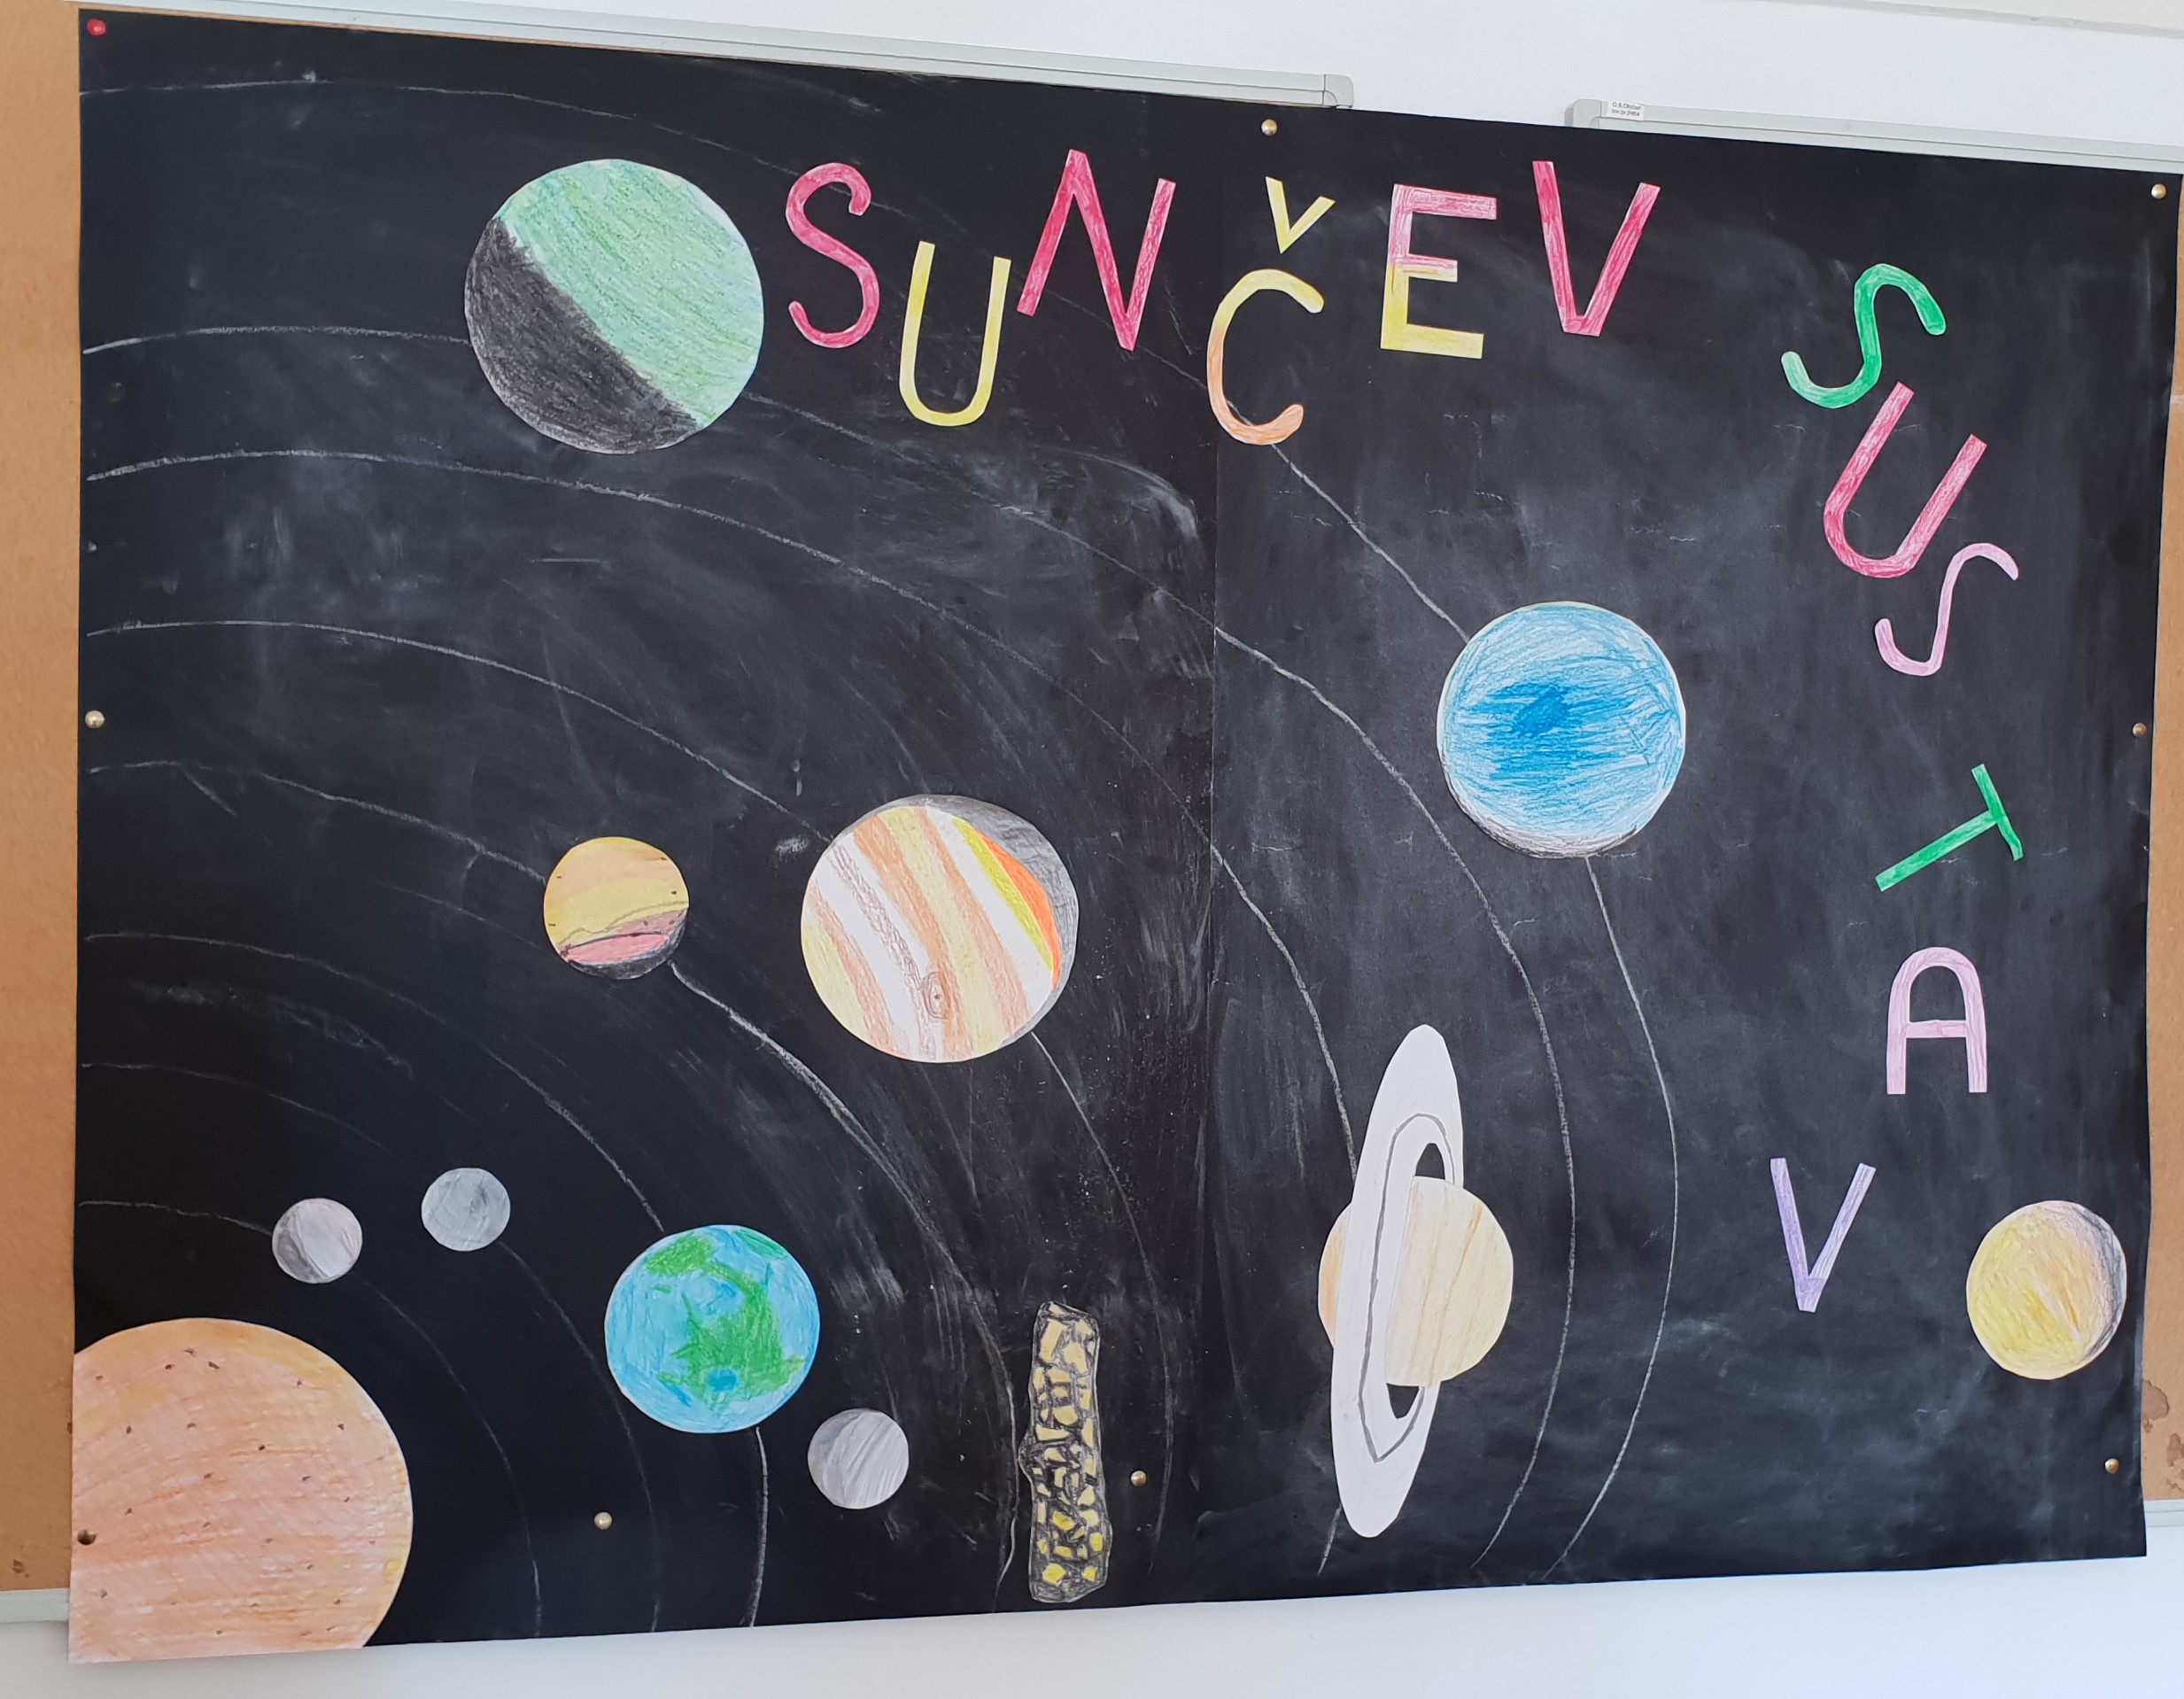 SUNČEV
SUSTAV